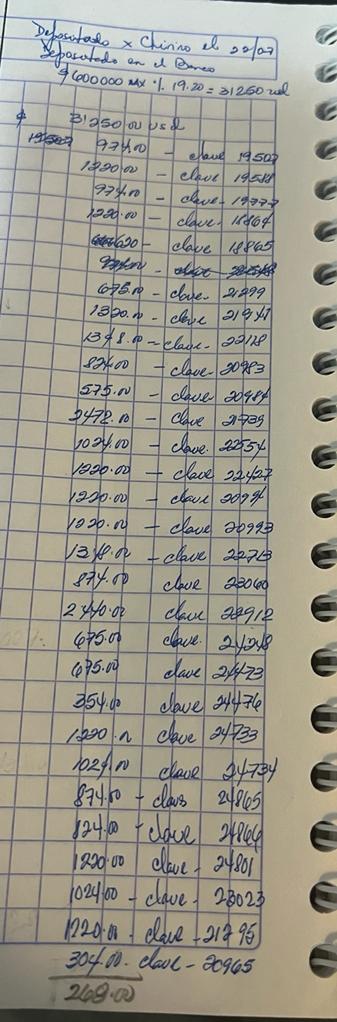 Depositado x Chirino el 22/07
Depositado en el Banco
$600000 MX % 19.20 = 31250 usd
$ 31250.00 usd
974.00 - clave 19507
1220.00 - clave 19518
974.00 - clave - 19777
1220.00 - clave - 18864
620 - clave 18865
675.00 - clave - 21299
1320.00 - clave 21947
1348.00 - clave - 22118
824.00 - clave - 20983
575.00 - clave 20984
2472.00 - clave 21739
1024.00 - clave 22554
1220.00 - clave 22427
1220.00 - clave 20994
1220.00 - clave 20993
1348.00 - clave 22713
874.00 clave 23060
2440.00 clave 23912
675.00 clave 24248
675.00 clave 24473
354.00 clave 24476
1220.00 clave 24733
1024.00 clave 24734
874.00 - clave 24865
824.00 - clave 24866
1220.00 clave - 24801
1024.00 - clave - 23023
1220.00 - clave - 21295
304.00 - clave - 20965
268.00